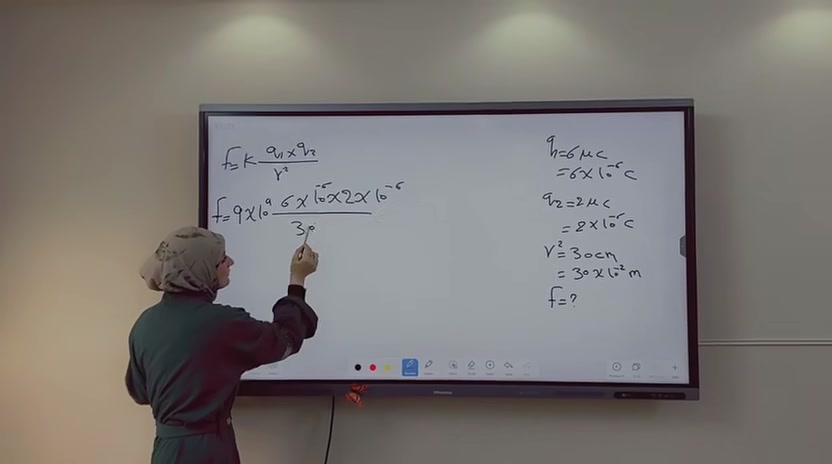 f = K q1 × q2 / r²
f = 9 × 10⁹ 6 × 10⁻⁶ × 2 × 10⁻⁶ / 30
q1 = 6 μc
= 6 × 10⁻⁶ C
q2 = 2 μc
= 2 × 10⁻⁶ C
r² = 30 cm
= 30 × 10⁻² m
f = ?